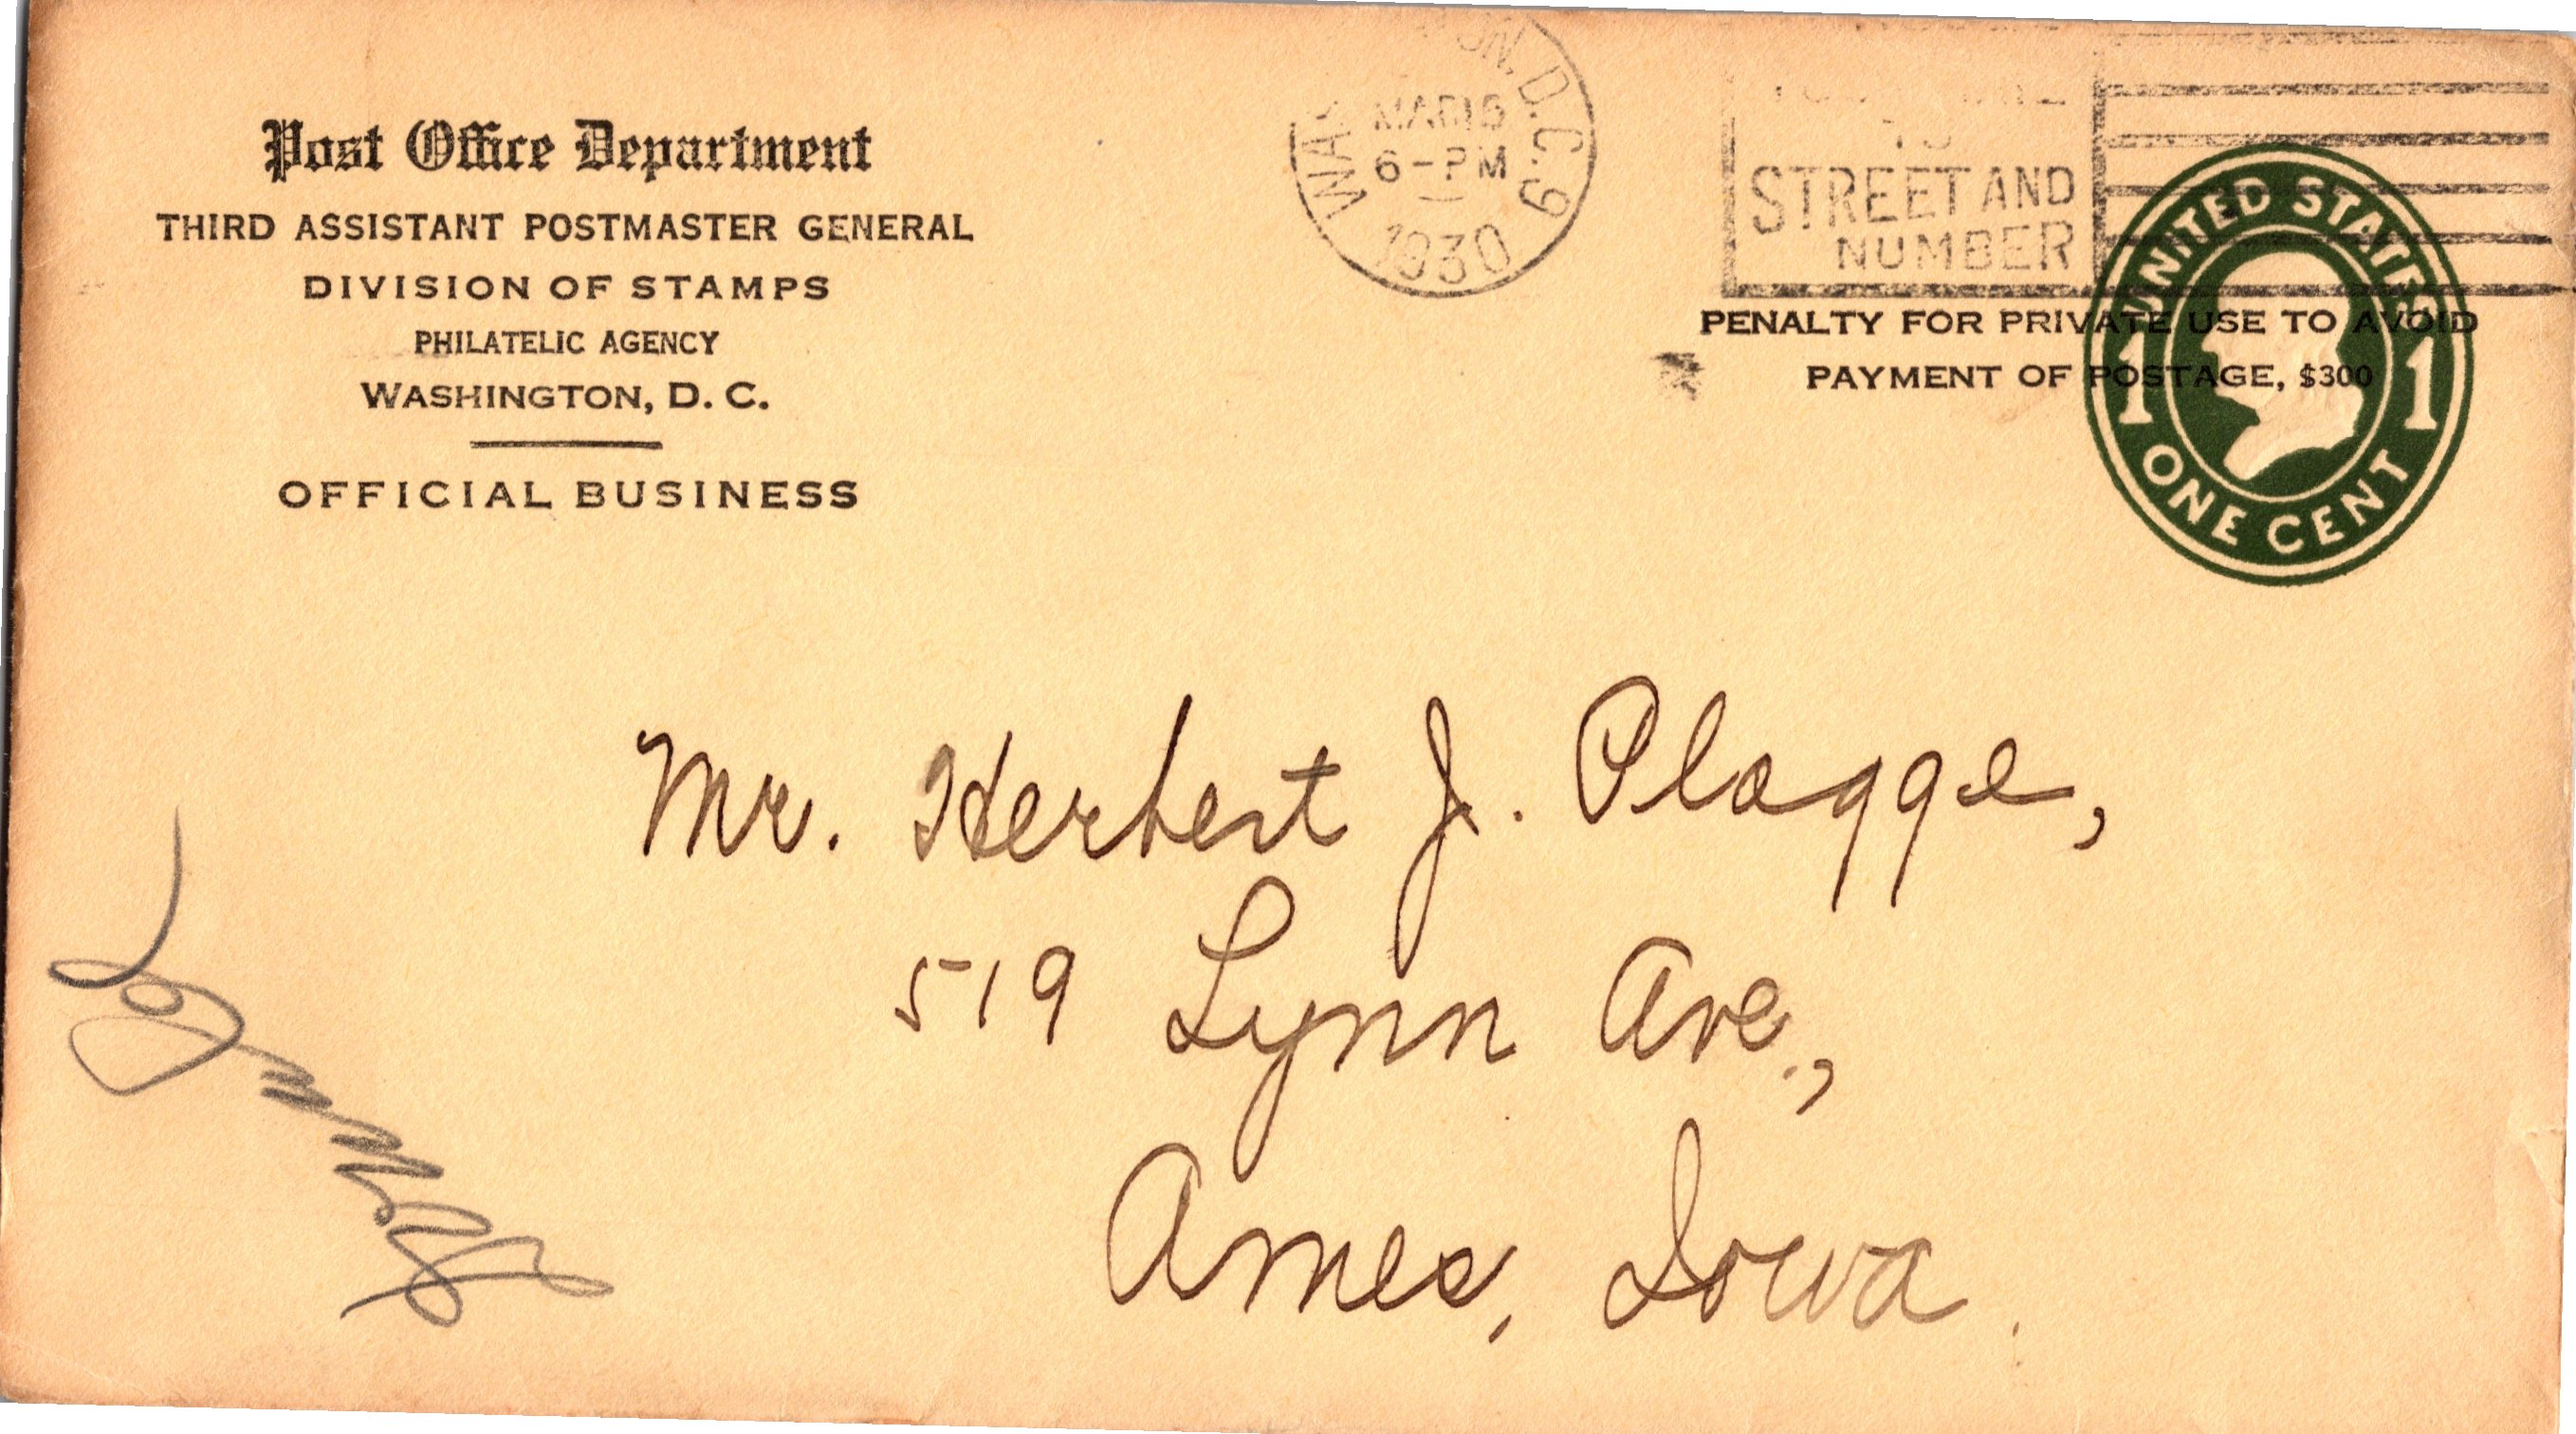 Post Office Department
THIRD ASSISTANT POSTMASTER GENERAL
DIVISION OF STAMPS
PHILATELIC AGENCY
WASHINGTON, D. C.
OFFICIAL BUSINESS
D.C. 9
6-PM
1930
STREET AND
NUMBER
PENALTY FOR PRIVATE USE TO AVOID
PAYMENT OF POSTAGE, $300
UNITED STATES
1 1
ONE CENT
Mr. Herbert J. Plagge,
519 Lynn Ave.,
Ames, Iowa.